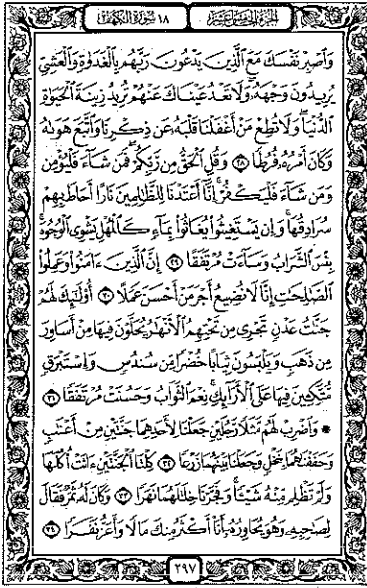 الجزء الخامس عشر
١٨ سورة الكهف
وَٱصْبِرْ نَفْسَكَ مَعَ ٱلَّذِينَ يَدْعُونَ رَبَّهُم بِٱلْغَدَوٰةِ وَٱلْعَشِىِّ
يُرِيدُونَ وَجْهَهُۥ وَلَا تَعْدُ عَيْنَاكَ عَنْهُمْ تُرِيدُ زِينَةَ ٱلْحَيَوٰةِ
ٱلدُّنْيَا وَلَا تُطِعْ مَنْ أَغْفَلْنَا قَلْبَهُۥ عَن ذِكْرِنَا وَٱتَّبَعَ هَوَىٰهُ
وَكَانَ أَمْرُهُۥ فُرُطًا ٢٨ وَقُلِ ٱلْحَقُّ مِن رَّبِّكُمْ فَمَن شَآءَ فَلْيُؤْمِن
وَمَن شَآءَ فَلْيَكْفُرْ إِنَّآ أَعْتَدْنَا لِلظَّٰلِمِينَ نَارًا أَحَاطَ بِهِمْ
سُرَادِقُهَا وَإِن يَسْتَغِيثُوا۟ يُغَاثُوا۟ بِمَآءٍ كَٱلْمُهْلِ يَشْوِى ٱلْوُجُوهَ
بِئْسَ ٱلشَّرَابُ وَسَآءَتْ مُرْتَفَقًا ٢٩ إِنَّ ٱلَّذِينَ ءَامَنُوا۟ وَعَمِلُوا۟
ٱلصَّٰلِحَٰتِ إِنَّا لَا نُضِيعُ أَجْرَ مَنْ أَحْسَنَ عَمَلًا ٣٠ أُو۟لَٰٓئِكَ لَهُمْ
جَنَّٰتُ عَدْنٍ تَجْرِى مِن تَحْتِهِمُ ٱلْأَنْهَٰرُ يُحَلَّوْنَ فِيهَا مِنْ أَسَاوِرَ
مِن ذَهَبٍ وَيَلْبَسُونَ ثِيَابًا خُضْرًا مِّن سُندُسٍ وَإِسْتَبْرَقٍ
مُّتَّكِـِٔينَ فِيهَا عَلَى ٱلْأَرَآئِكِ نِعْمَ ٱلثَّوَابُ وَحَسُنَتْ مُرْتَفَقًا ٣١
* وَٱضْرِبْ لَهُم مَّثَلًا رَّجُلَيْنِ جَعَلْنَا لِأَحَدِهِمَا جَنَّتَيْنِ مِنْ أَعْنَٰبٍ
وَحَفَفْنَٰهُمَا بِنَخْلٍ وَجَعَلْنَا بَيْنَهُمَا زَرْعًا ٣٢ كِلْتَا ٱلْجَنَّتَيْنِ ءَاتَتْ أُكُلَهَا
وَلَمْ تَظْلِم مِّنْهُ شَيْـًٔا وَفَجَّرْنَا خِلَٰلَهُمَا نَهَرًا ٣٣ وَكَانَ لَهُۥ ثَمَرٌ فَقَالَ
لِصَٰحِبِهِۦ وَهُوَ يُحَاوِرُهُۥٓ أَنَا۠ أَكْثَرُ مِنكَ مَالًا وَأَعَزُّ نَفَرًا ٣٤
٢٩٧